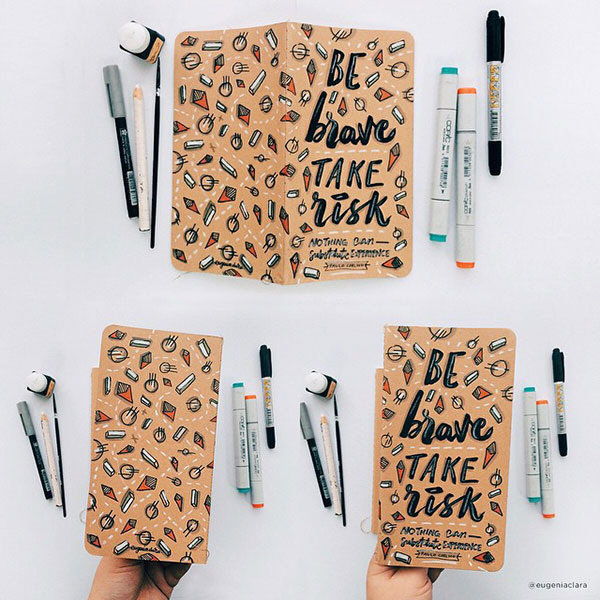 BE
brave
TAKE
risk
NOTHING CAN
substitute EXPERIENCE
PAULO COELHO
BE
brave
TAKE
risk
NOTHING CAN
substitute EXPERIENCE
PAULO COELHO
@eugeniaclara